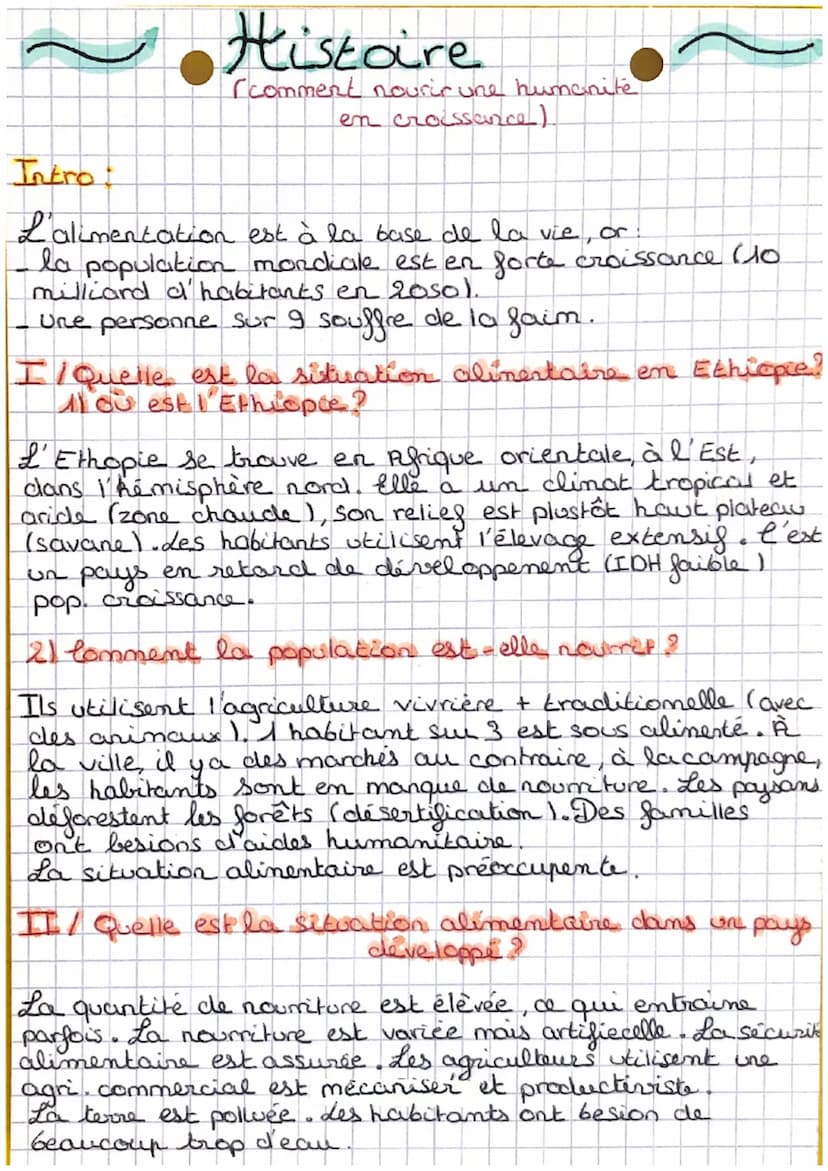 Histoire
(comment nourir une humanité
en croissance)
Intro :
L'alimentation est à la base de la vie, or :
- la population mondiale est en forte croissance (10
milliard d'habitants en 2050).
- Une personne sur 9 souffre de la faim.
I / Quelle est la situation alimentaire en Ethiopie?
1) où est l'Ethiopie ?
L'Ethopie se trouve en Afrique orientale, à l'Est,
dans l'hémisphère nord. Elle a un climat tropical et
aride (zone chaude), son relief est plustôt haut plateau
(savane). Les habitants utilisent l'élevage extensif. C'est
un pays en retard de développement (IDH faible)
pop. croissance.
2) Comment la population est-elle nourrir ?
Ils utilisent l'agriculture vivrière + traditionelle (avec
des animaux). 1 habitant sur 3 est sous alimenté. À
la ville, il y a des marchés au contraire, à la campagne,
les habitants sont en manque de nourriture. Les paysans
déforestent les forêts (désertification). Des familles
ont besions d'aides humanitaire.
La situation alimentaire est préoccupente.
II / Quelle est la situation alimentaire dans un pays
développé ?
La quantité de nourriture est élèvée, ce qui entraine
parfois. La nourriture est variée mais artifiecelle. La sécurité
alimentaire est assurée. Les agriculteurs utilisent une
agri. commercial est mécaniser et productiviste.
La terre est polluée. Les habitants ont besion de
beaucoup trop d'eau.